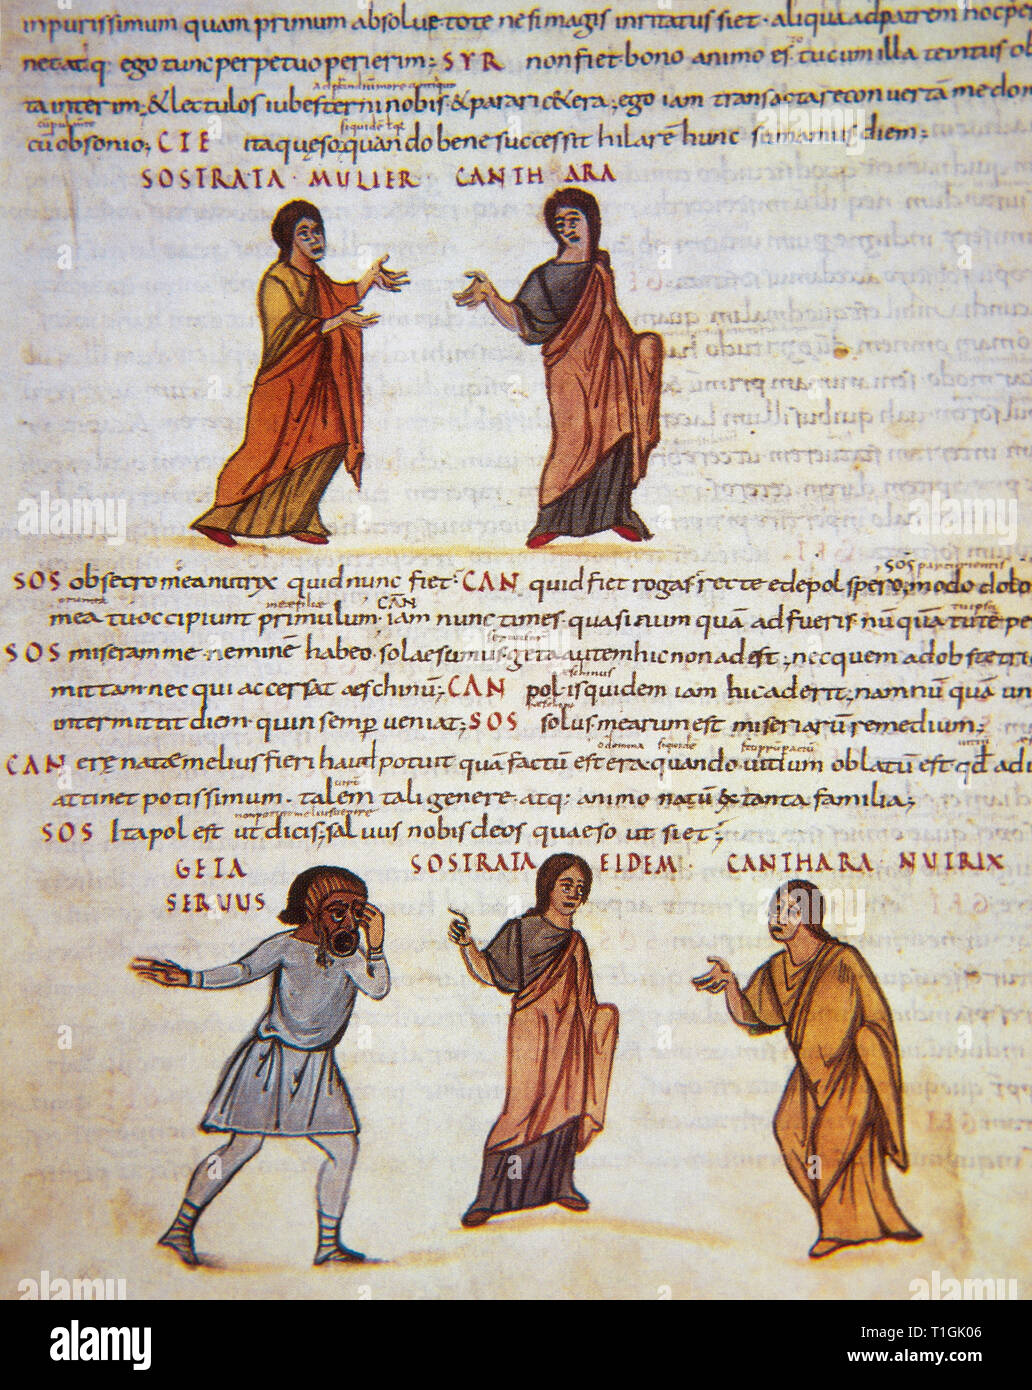 inpurissimum quam primum absoluetote ne si magis inritatus siet · aliqua ad patrem hoc per
net atq ego tunc perpetuo perierim; SYR non fiet bono animo es tu cum illa te intus ob
ta interim · & lectulos iube sterni nobis · & parari cetera; ego iam transacta re conuertam me dom
cū obsonio; CTE ita quęso quando bene successit hilarē hunc sumamus diem;
SOSTRATA · MULIER CANTHARA
SOS obsecro mea nutrix quid nunc fiet · CAN quid fiet rogas recte edepol spero; modo dolo
mea tu occipiunt primulum · iam nunc times · quasi num quā adfueris · nū quā tute pe
SOS miseram me neminē habeo · solae sumus · geta autem hic non adest; nec quem ad obstetri
mittam nec qui accersat aeschinū; CAN pol is quidem iam hic aderit; nam nū quā un
intermittit diem · quin semp ueniat; SOS solus mearum est miseriarū remedium;
CAN erę nata melius fieri haud potuit quā factū est era · quando uitium oblatū est qđ ad i
attinet potissimum · talem tali genere · atq; animo natū ex tanta familia;
SOS Ita pol est ut dicis; saluus nobis deos quaeso ut siet;
GETA SERUUS
SOSTRATA EIDEM · CANTHARA · NUTRIX
alamy
Image ID: T1GK06
www.alamy.com